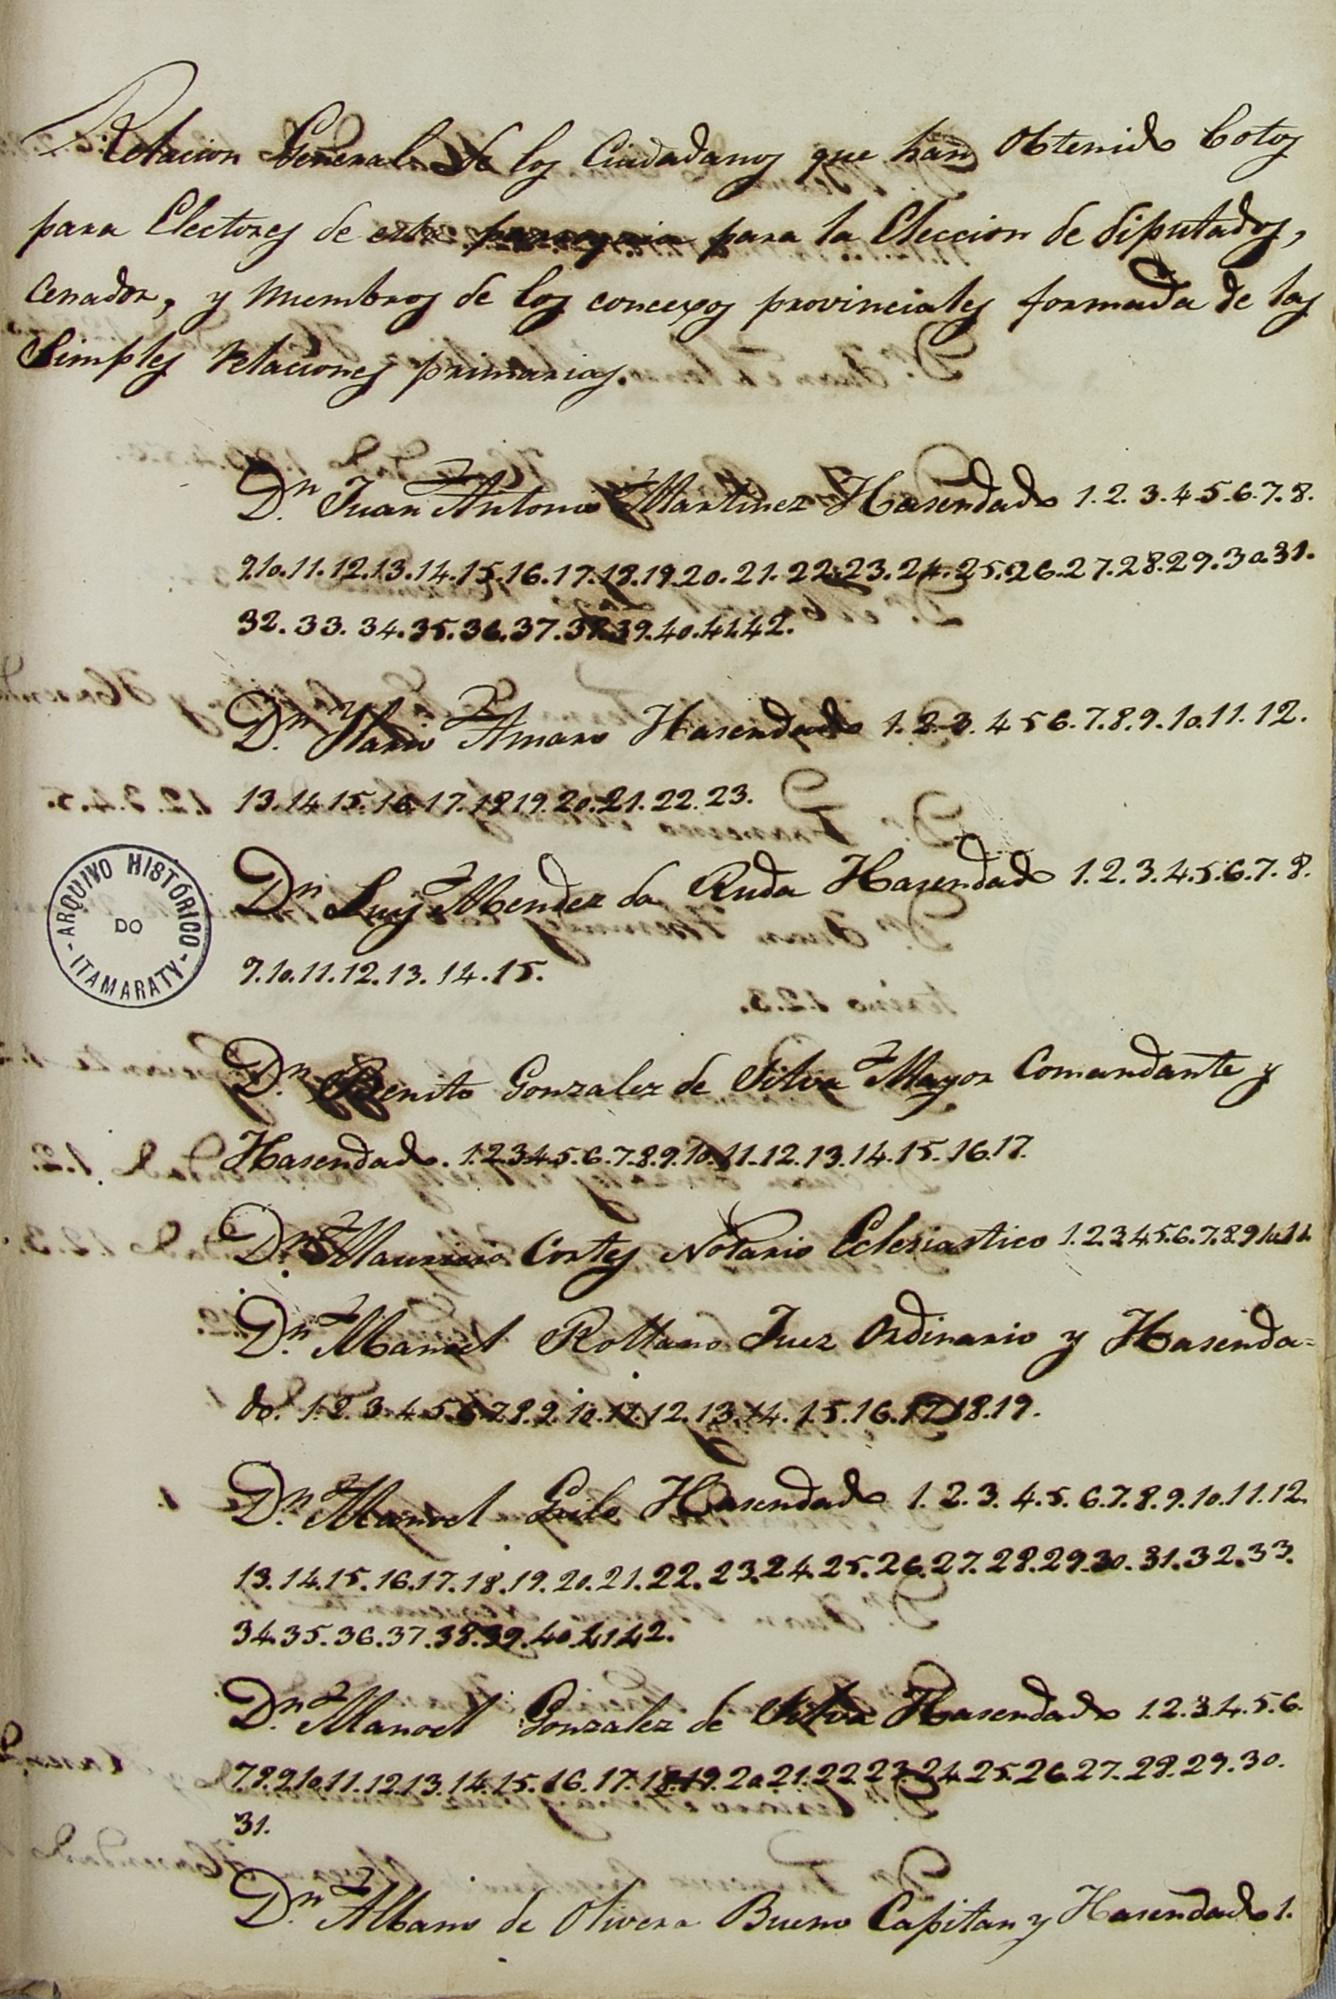 Relacion General de los Ciudadanos que han Obtenido Votos
para Electores de esta parroquia para la Eleccion de diputados,
Cenador, y Miembros de los concexos provinciales formada de las
Simples Relaciones primarias.
Dn. Juan Antonio Martinez Hasendado 1.2.3.4.5.6.7.8.
9.10.11.12.13.14.15.16.17.18.19.20.21.22.23.24.25.26.27.28.29.30.31.
32.33.34.35.36.37.38.39.40.41.42.
Dn. Ilario Amaro Hasendado 1.2.3.4 5 6.7.8.9.10.11.12.
13.14.15.16.17.18 19.20.21.22.23.
Dn. Luis Mendez da Ruda Hasendado 1.2.3.4.5.6.7.8.
9.10.11.12.13.14.15.
Dn. Benito Gonzalez de Silva Mayor Comandante y
Hasendado. 1.2.3.4.5.6.7.8.9.10.11.12.13.14.15.16.17.
Dn. Mauricio Cortes Notario Eclesiastico 1.2.3.4.5.6.7.8.9.10.11.
Dn. Manoel Rollano Juez Ordinario y Hasenda=
do. 1.2.3.4.5.6.7.8.9.10.11.12.13.14.15.16.17.18.19.
Dn. Manoel Gile Hasendado 1.2.3.4.5.6.7.8.9.10.11.12.
13.14.15.16.17.18.19.20.21.22.23.24.25.26.27.28.29.30.31.32.33.
34.35.36.37.38.39.40.41.42.
Dn. Manoel Gonzalez de Silva Hasendado 1.2.3.4.5.6.
7.8.9.10.11.12.13.14.15.16.17.18.19.20.21.22.23.24.25.26.27.28.29.30.
31.
Dn. Albano de Olivera Bueno Capitan y Hasendado 1.
ARQUIVO HISTÓRICO
DO
ITAMARATY